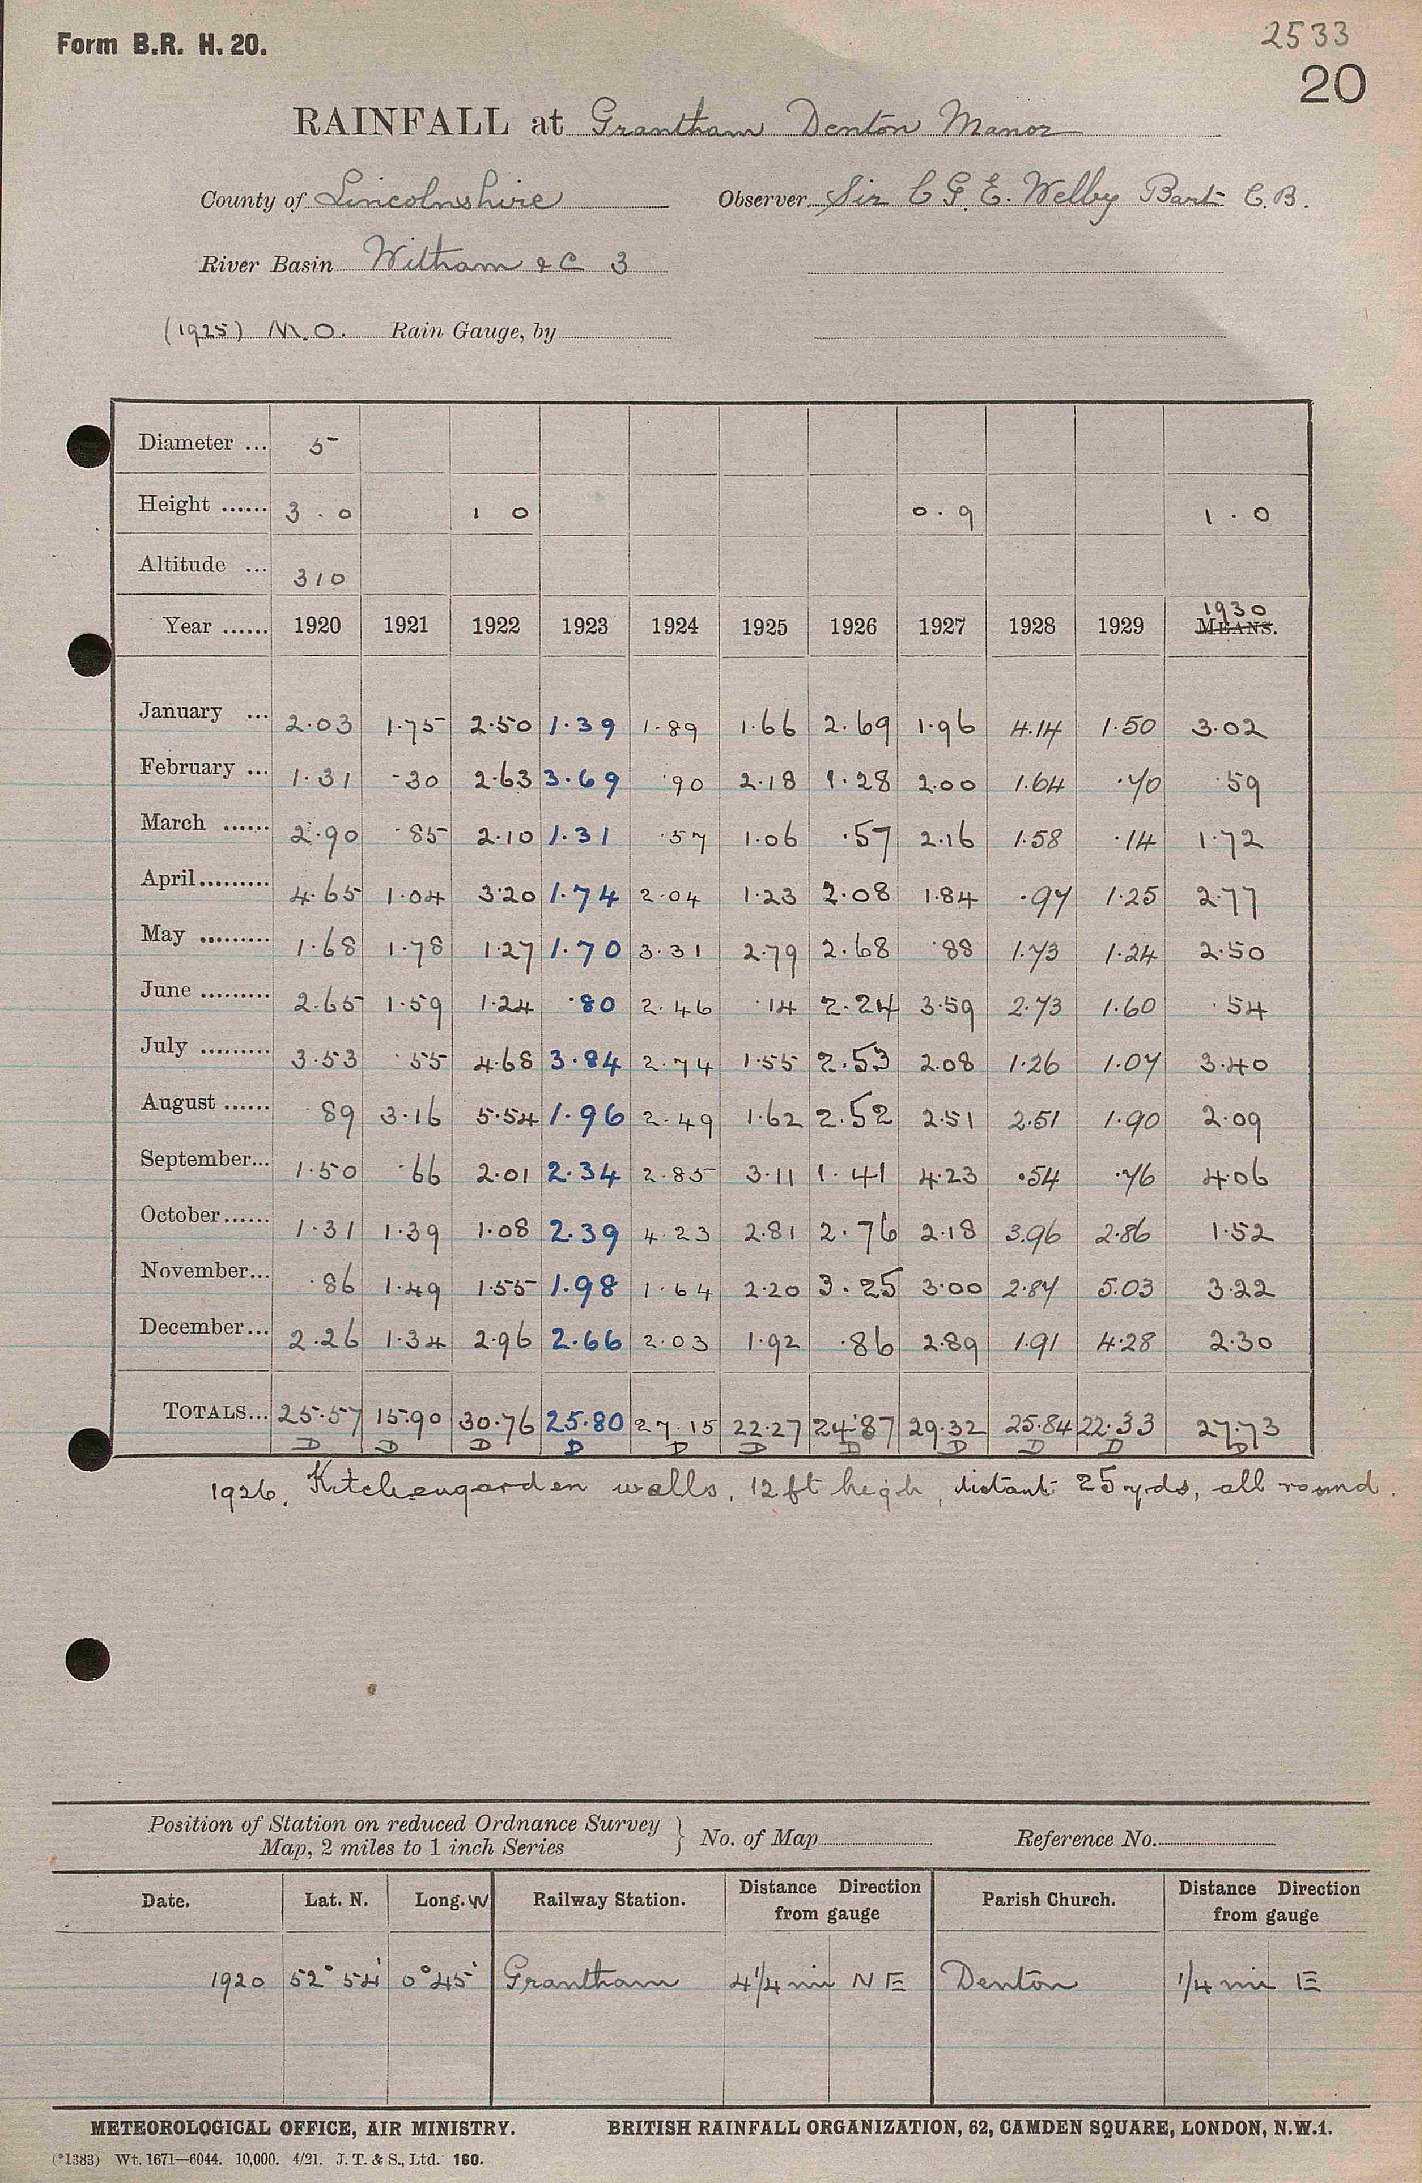 Form B.R. H. 20.
2533
20
RAINFALL at Grantham Denton Manor
County of Lincolnshire Observer Sir C G. E. Welby Bart C.B.
River Basin Witham &c 3
(1925) M.O. Rain Gauge, by
Diameter ... 5
Height ...... 3 . 0 1 0 0 . 9 1 . 0
Altitude ... 310
1930
Year ...... 1920 1921 1922 1923 1924 1925 1926 1927 1928 1929 MEANS.
January ... 2.03 1.75 2.50 1.39 1.89 1.66 2.69 1.96 4.14 1.50 3.02
February ... 1.31 .30 2.63 3.69 .90 2.18 1.28 2.00 1.64 .70 .59
March ...... 2.90 .85 2.10 1.31 .57 1.06 .57 2.16 1.58 .14 1.72
April......... 4.65 1.04 3.20 1.74 2.04 1.23 2.08 1.84 .97 1.25 2.77
May ......... 1.68 1.78 1.27 1.70 3.31 2.79 2.68 .88 1.73 1.24 2.50
June ......... 2.65 1.59 1.24 .80 2.46 .14 2.24 3.59 2.73 1.60 .54
July ......... 3.53 .55 4.68 3.84 2.74 1.55 2.53 2.08 1.26 1.07 3.40
August ...... .89 3.16 5.54 1.96 2.49 1.62 2.52 2.51 2.51 1.90 2.09
September... 1.50 .66 2.01 2.34 2.85 3.11 1.41 4.23 .54 .76 4.06
October...... 1.31 1.39 1.08 2.39 4.23 2.81 2.76 2.18 3.96 2.86 1.52
November... .86 1.49 1.55 1.98 1.64 2.20 3.25 3.00 2.87 5.03 3.22
December... 2.26 1.34 2.96 2.66 2.03 1.92 .86 2.89 1.91 4.28 2.30
TOTALS... 25.57 15.90 30.76 25.80 27.15 22.27 24.87 29.32 25.84 22.33 27.73
D D D D D D D D D D D
1926. Kitchengarden walls, 12 ft high, distant 25 yds, all round.
Position of Station on reduced Ordnance Survey
Map, 2 miles to 1 inch Series } No. of Map Reference No.
Date. Lat. N. Long. W Railway Station. Distance Direction from gauge Parish Church. Distance Direction from gauge
1920 52° 54' 0° 45' Grantham 4 1/4 mi N E Denton 1/4 mi E
METEOROLOGICAL OFFICE, AIR MINISTRY. BRITISH RAINFALL ORGANIZATION, 62, CAMDEN SQUARE, LONDON, N.W.1.
(*1383) Wt. 1671—6044. 10,000. 4/21. J. T. & S., Ltd. 160.